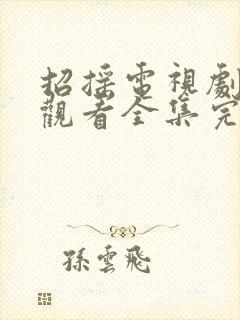 招摇電視劇
觀看全集完
孫雲飛